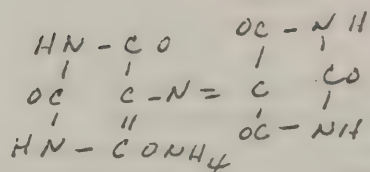 HN - CO OC - NH
OC C - N = C CO
HN - CONH4 OC - NH